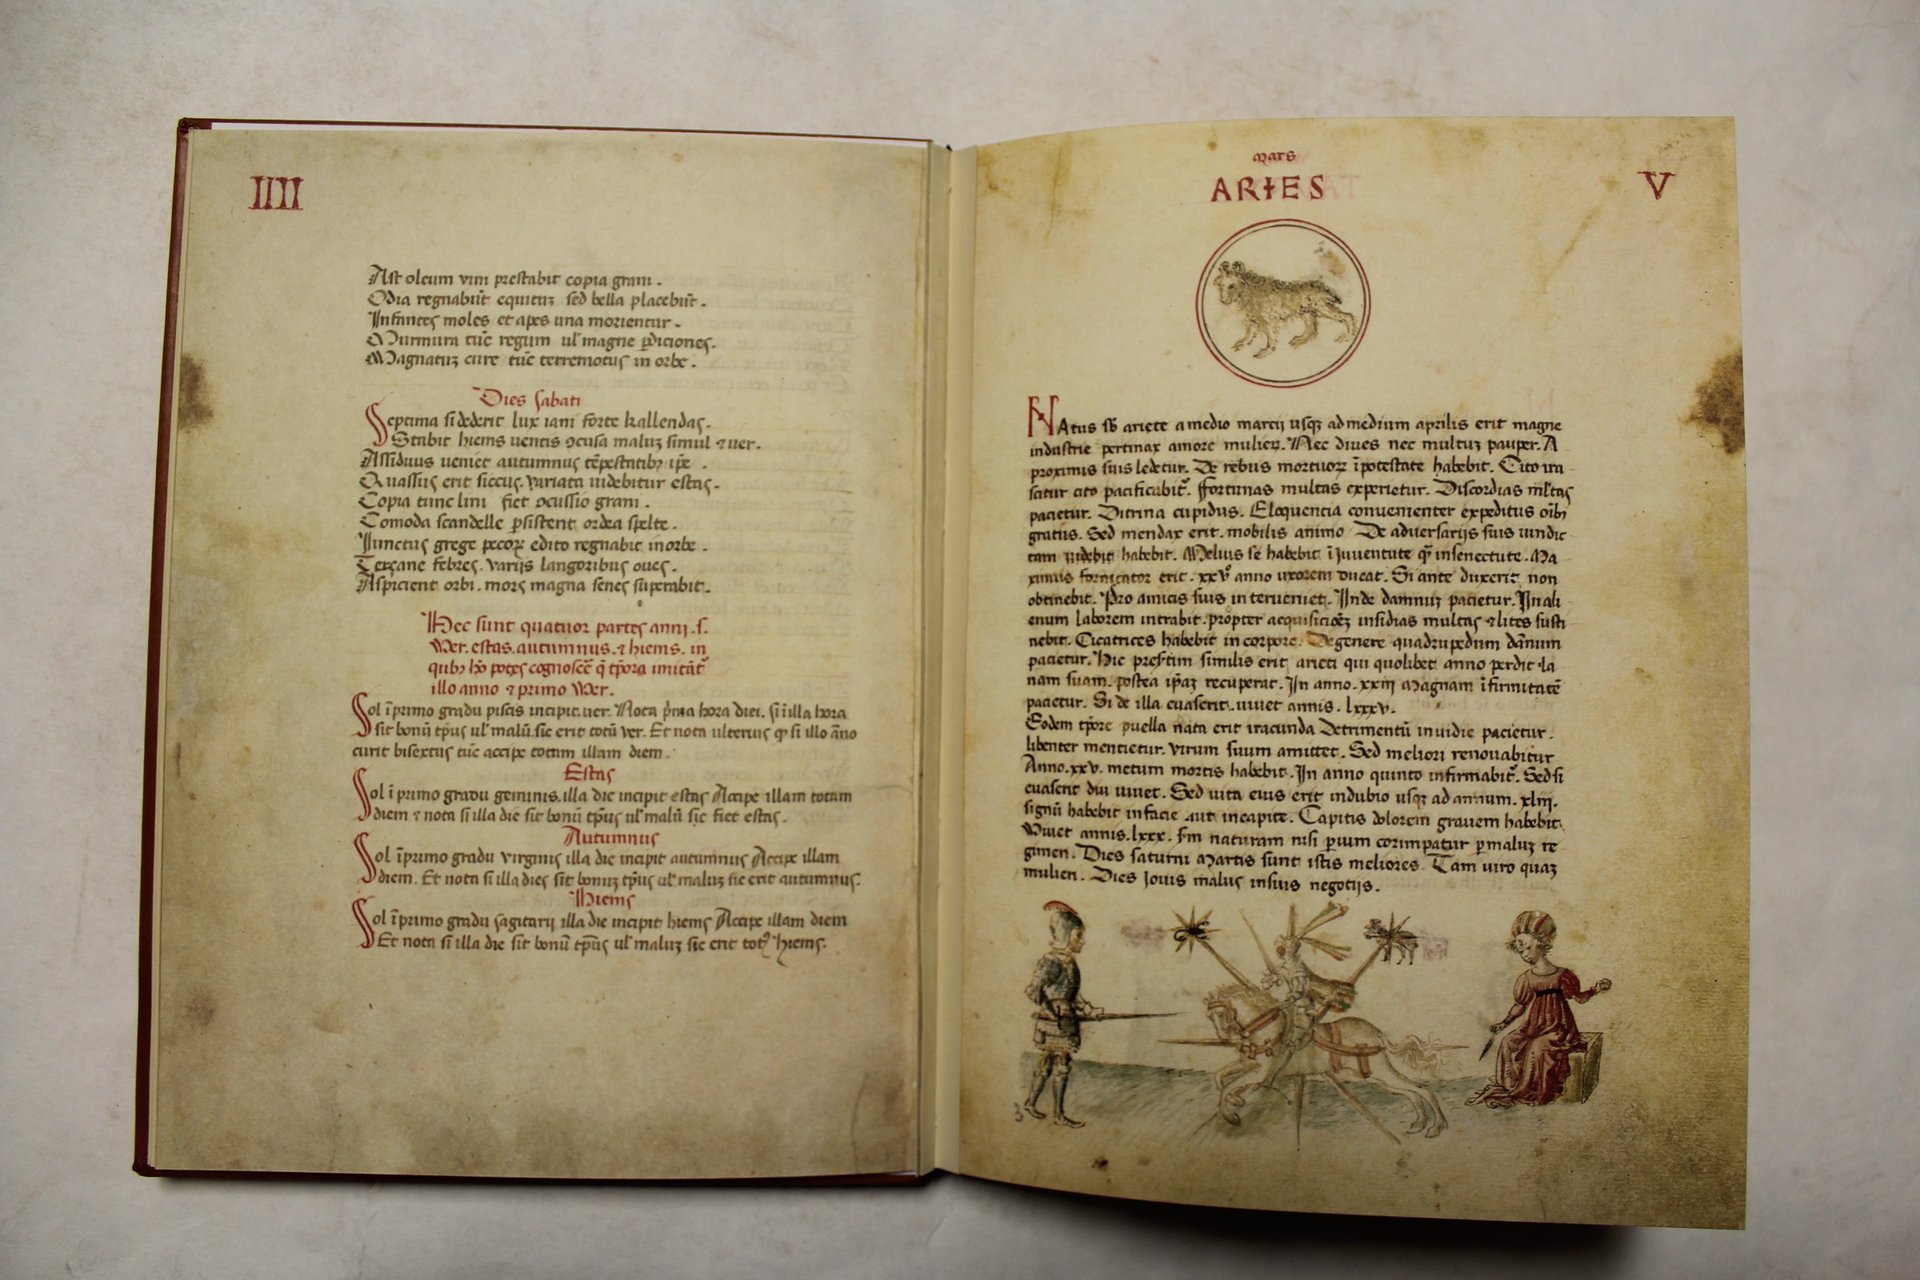 IIII
Ast oleum vini prestabit copia grani.
Odia regnabūt equituʒ sed bella placebūt.
Infantes moles et apes una morientur.
Murmura tūc regum ul' magne ꝓdiciones.
Magnatuʒ cure tūc terremotus in orbe.
Dies sabati
Septima si dederit lux iani forte kallendas.
Stabit hiems uentis ↄcusa maluʒ simul ⁊ uer.
Assiduus ueniet autumnus tēpestatibꝫ ip̄e.
Quassus erit siccus. variata uidebitur estas.
Copia tunc lini fiet ↄcussio grani.
Comoda scandelle ꝑsistent ordea spelte.
Iunctus grege pecoꝝ edito regnabit in orbe.
Terçane febres. variis langoribus oues.
Aspicient orbi. mors magna senes superabit.
Hec sunt quatuor partes anni. s.
Ver. estas. autumnus. ⁊ hiems. in
illo anno ⁊ primo Ver.
Sol ī primo gradu piscis incipit. uer. Nota p̄ma hora diei. si ī illa hora
sit bonū tp̄us ul' malū. sic erit totū ver. Et nota ulterius ꝙ si illo āno
curit bisextus tūc accipe totam illam diem.
Estas
Sol ī primo gradu geminis. illa die incipit estas Accipe illam totam
diem ⁊ nota si illa die sit bonū tp̄us ul' malū sic fiet estas.
Autumnus
Sol ī primo gradu virginis illa die incipit autumnus Accipe illam
diem. Et nota si illa dies sit bonuʒ tp̄us ul' maluʒ sic erit autumnus.
Hiems
Sol ī primo gradu sagitarij illa die incipit hiems Accipe illam diem
Et nota si illa die sit bonū tp̄us ul' maluʒ sic erit totꝰ hiems.
Mars
ARIES
V
NAtus sb̄ ariete a medio marcij usqʒ ad medium aprilis erit magne
industrie pertinax amore mulieꝝ. Nec diues nec multuʒ pauper. A
proximis suis ledetur. De rebus mortuoꝝ ī potestate habebit. Cito ira
scitur cito pacificabit᷑. Fortunas multas experietur. Discordias ml'tas
pacietur. Ditrina cupidus. Eloquencia conuenienter expeditus oībꝫ
gratus. Sed mendax erit. mobilis animo. De aduersarijs suis uindic
tam uidebit habebit. Melius se habebit ī iuuentute qͣ̄ in senectute. Ma
ximus fornicator erit. xxv̊ anno uxorem ducat. Si ante duxerit non
obtinebit. Pro amicis suis in terueniet. Inde damnuʒ pacietur. In ali
enum laborem intrabit. propter acquisicōeʒ insidias multas ⁊ lites susti
nebit. Cicatrices habebit in corpore. De genere quadrupedum dānum
pacietur. Hic presītim similis erit arieti qui quolibet anno perdit la
nam suam. postea ip̄aʒ recuperat. In anno. xxiij Magnam īfirmitatē
pacietur. Si de illa euaserit. uiuet annis. lxxxv.
Eodem tp̄ore puella nata erit iracunda Detrimentū inuidie pacietur.
libenter mentietur. virum suum amittet. Sed meliori renouabitur
Anno. xxv. metum mortis habebit. In anno quinto infirmabit᷑. Sed si
euaserit diu uiuet. Sed uita eius erit in dubio usqʒ ad annum. xliij.
signū habebit in facie aut in capite. Capitis dolorem grauem habebit.
Viuet annis. lxxx. Fm naturam nisi ꝑuium corumpatur ꝑ maluʒ re
gimen. Dies saturni Martis sunt istis meliores. Tam uiro quaʒ
mulieri. Dies Iouis malus in suis negotijs.
3